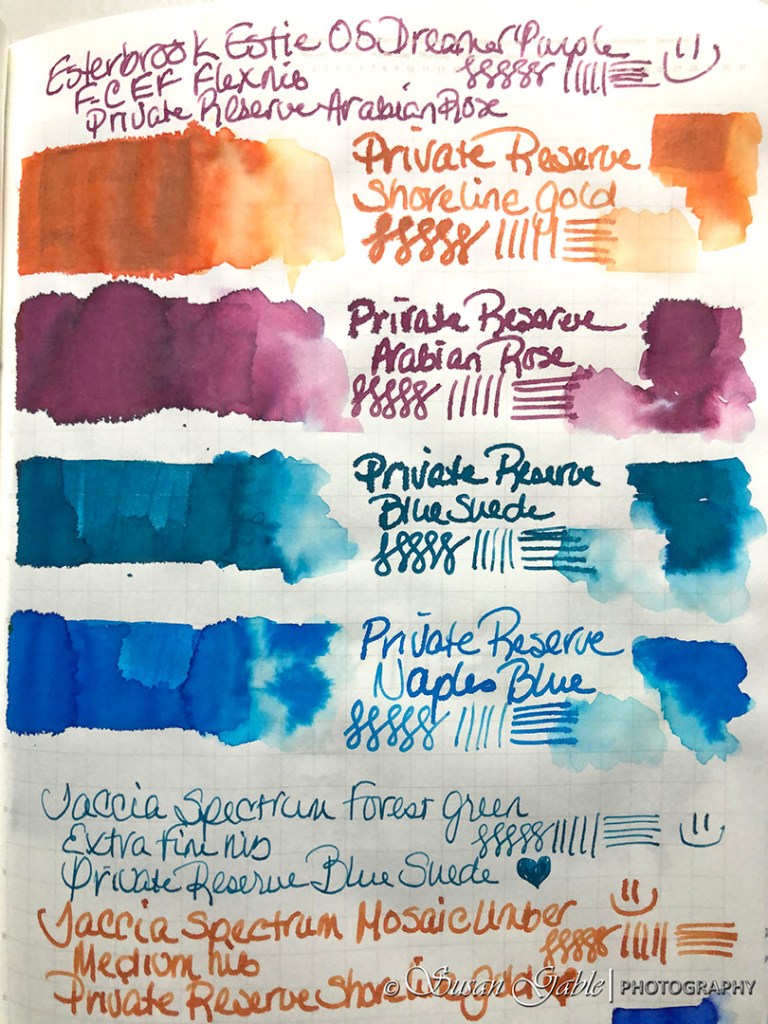 Esterbrook Estie OS Dreamer Purple
F-C EF Flex nib
Private Reserve Arabian Rose
Private Reserve
Shoreline Gold
Private Reserve
Arabian Rose
Private Reserve
Blue Suede
Private Reserve
Naples Blue
Taccia Spectrum Forest Green
Extra fine nib
Private Reserve Blue Suede
Taccia Spectrum Mosaic Umber
Medium nib
Private Reserve Shoreline Gold
© Susan Gable | PHOTOGRAPHY